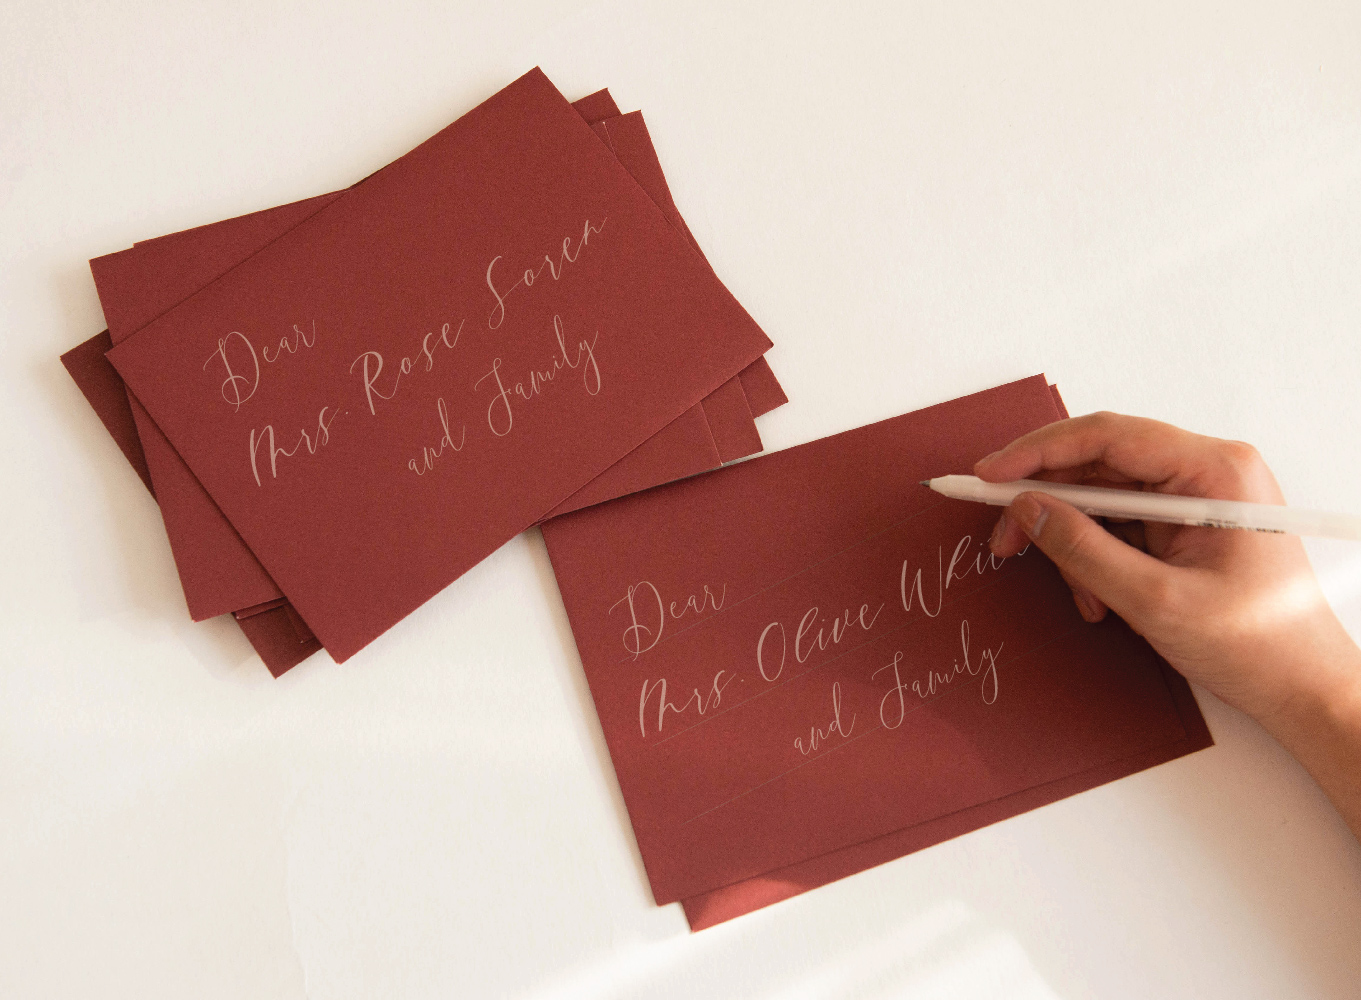 Dear
Mrs. Rose Soren
and Family
Dear
Mrs. Olive
and Family